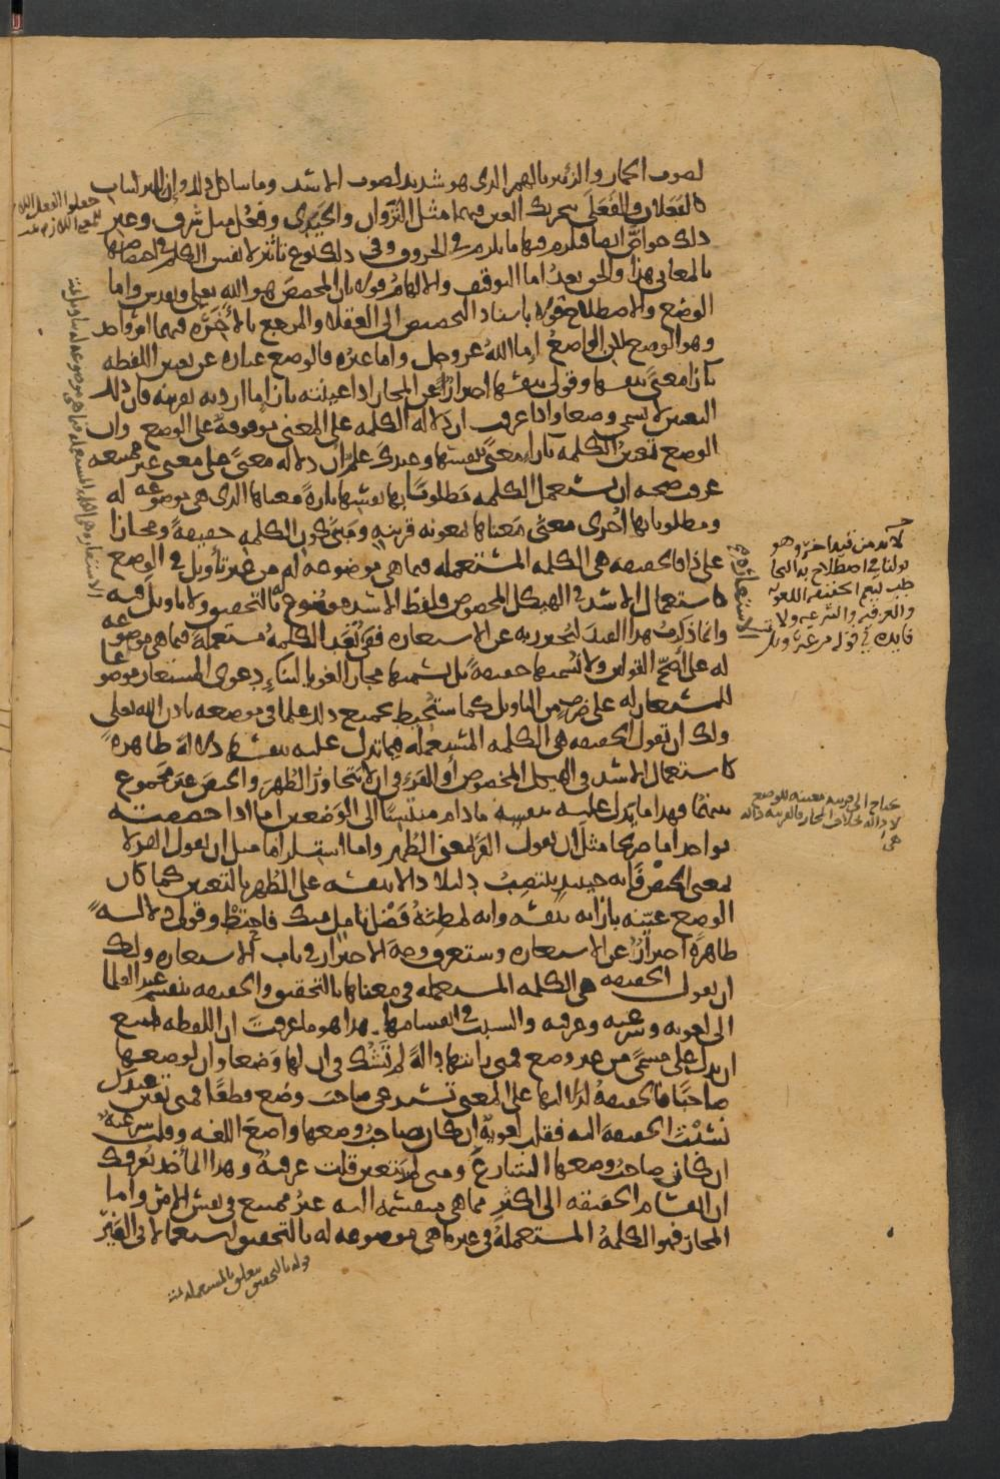 لصوت الحمار والزئير بالهمز الذى هو شديد لصوت الاسد وما شاكل ذلك وان للتركيبات
كالفعلان والفعلى بتحريك العين منهما مثل النزوان والحيدى وفعل مثل شرف وغير
ذلك خواص ايضا فيلزم فيها ما يلزم فى الحروف وفى ذلك نوع تأثير لانفس الكلم فى اختصاصها
بالمعانى هذا والحق بعد اما التوقيف والالهام قولا بان المخصص هو الله تعالى وتقدس واما
الوضع والاصطلاح قولا باسناد التخصيص الى العقلاء والمرجع بالأخرة فيهما امر واحد
وهو الوضع لكن الواضع اما الله عز وجل واما غيره والوضع عبارة عن تعيين اللفظه
بازاء معنى بنفسها وقولى بنفسها احتراز عن المجاز اذا عينته بازاء ما اردته بقرينه فان ذلك
التعيين لا يسمى وضعا واذا عرفت ان دلالة الكلمه على المعنى موقوفة على الوضع وان
الوضع تعيين الكلمه بازاء معنى بنفسها وعندك علم ان دلالة معنى على معنى غير ممتنعه
عرفت صحه ان تستعمل الكلمه مطلوبا بها نفسها تارة معناها الذى هى موضوعه له
ومطلوبا بها اخرى معنى معناها بمعونه قرينه ومبنى كون الكلمه حقيقة ومجازا
على ذلك فالحقيقه هى الكلمه المستعمله فيما هى موضوعه له من غير تأويل فى الوضع
كاستعمال الاسد فى الهيكل المخصوص فلفظ الاسد موضوع له بالتحقيق ولا تاويل فيه
وانما ذكرت هذا القيد ليحترز به عن الاستعاره ففى الاستعارة تعد الكلمه مستعملة فيما هى موضوعه
له على اصح القولين ولا نسميها حقيقه بل نسميها مجازا لغويا لبناء دعوى المستعار موضوعا
للمستعار له على ضرب من التاويل كما ستحيط بجميع ذلك علما فى موضعه باذن الله تعالى
ولك ان تقول الحقيقه هى الكلمه المستعمله فيما تدل عليه بنفسها دلالة ظاهرة
كاستعمال الاسد فى الهيكل المخصوص او القرء فى ان لا يتجاوز الطهر والحيض غير مجموع
بينهما فهذا ما يدل عليه بنفسه ما دام منتسبا الى الوضعين اما اذا خصصته
بواحد اما صريحا مثل ان تقول القرء بمعنى الطهر واما استلزاما مثل ان تقول القرء لا
بمعنى الحيض فانه حينئذ ينتصب دليلا دالا بنفسه على الطهر بالتعيين كما كان
الوضع عينه بازائه بنفسه وانه لمظنة فضل تامل منك فاحتط وقولى دلالة
ظاهرة احتراز عن الاستعاره وستعرف وجه الاحتراز فى باب الاستعاره ولك
ان تقول الحقيقه هى الكلمه المستعمله فى معناها بالتحقيق والحقيقه تنقسم عند العلما
الى لغويه وشرعيه وعرفيه والسبب فى انقسامها هذا هو ما عرفت ان اللفظه تمتنع
ان تدل على مسمى من غير وضع فمتى رايتها دالة لم تشك فى ان لها وضعا وان لوضعها
صاحبا فالحقيقة لدلالتها على المعنى تستدعى صاحب وضع قطعا فمتى تعين عندك
نسبت الحقيقه اليه فقلت لغوية ان كان صاحب وضعها واضع اللغه وقلت شرعية
ان كان صاحب وضعها الشارع ومتى لم يتعين قلت عرفية وهذا الماخذ يعرفك
ان انقسام الحقيقه الى اكثر مما هى منقسمه اليه غير ممتنع فى نفس الامر واما
المجاز فهو الكلمة المستعملة فى غير ما هى موضوعه له بالتحقيق استعمالا فى الغير
قوله بالتحقيق متعلق بالمستعمله
لا بد من قيد اخر وهو
قولنا فى اصطلاح به التخا
طب ليعم الحقيقة اللغويه
والعرفيه والشرعيه ولا
فايده فى قوله من غير تاويل
يحتاج الى قرينه معينه للوضع
لا دالة بخلاف المجاز فالقرينه دالة